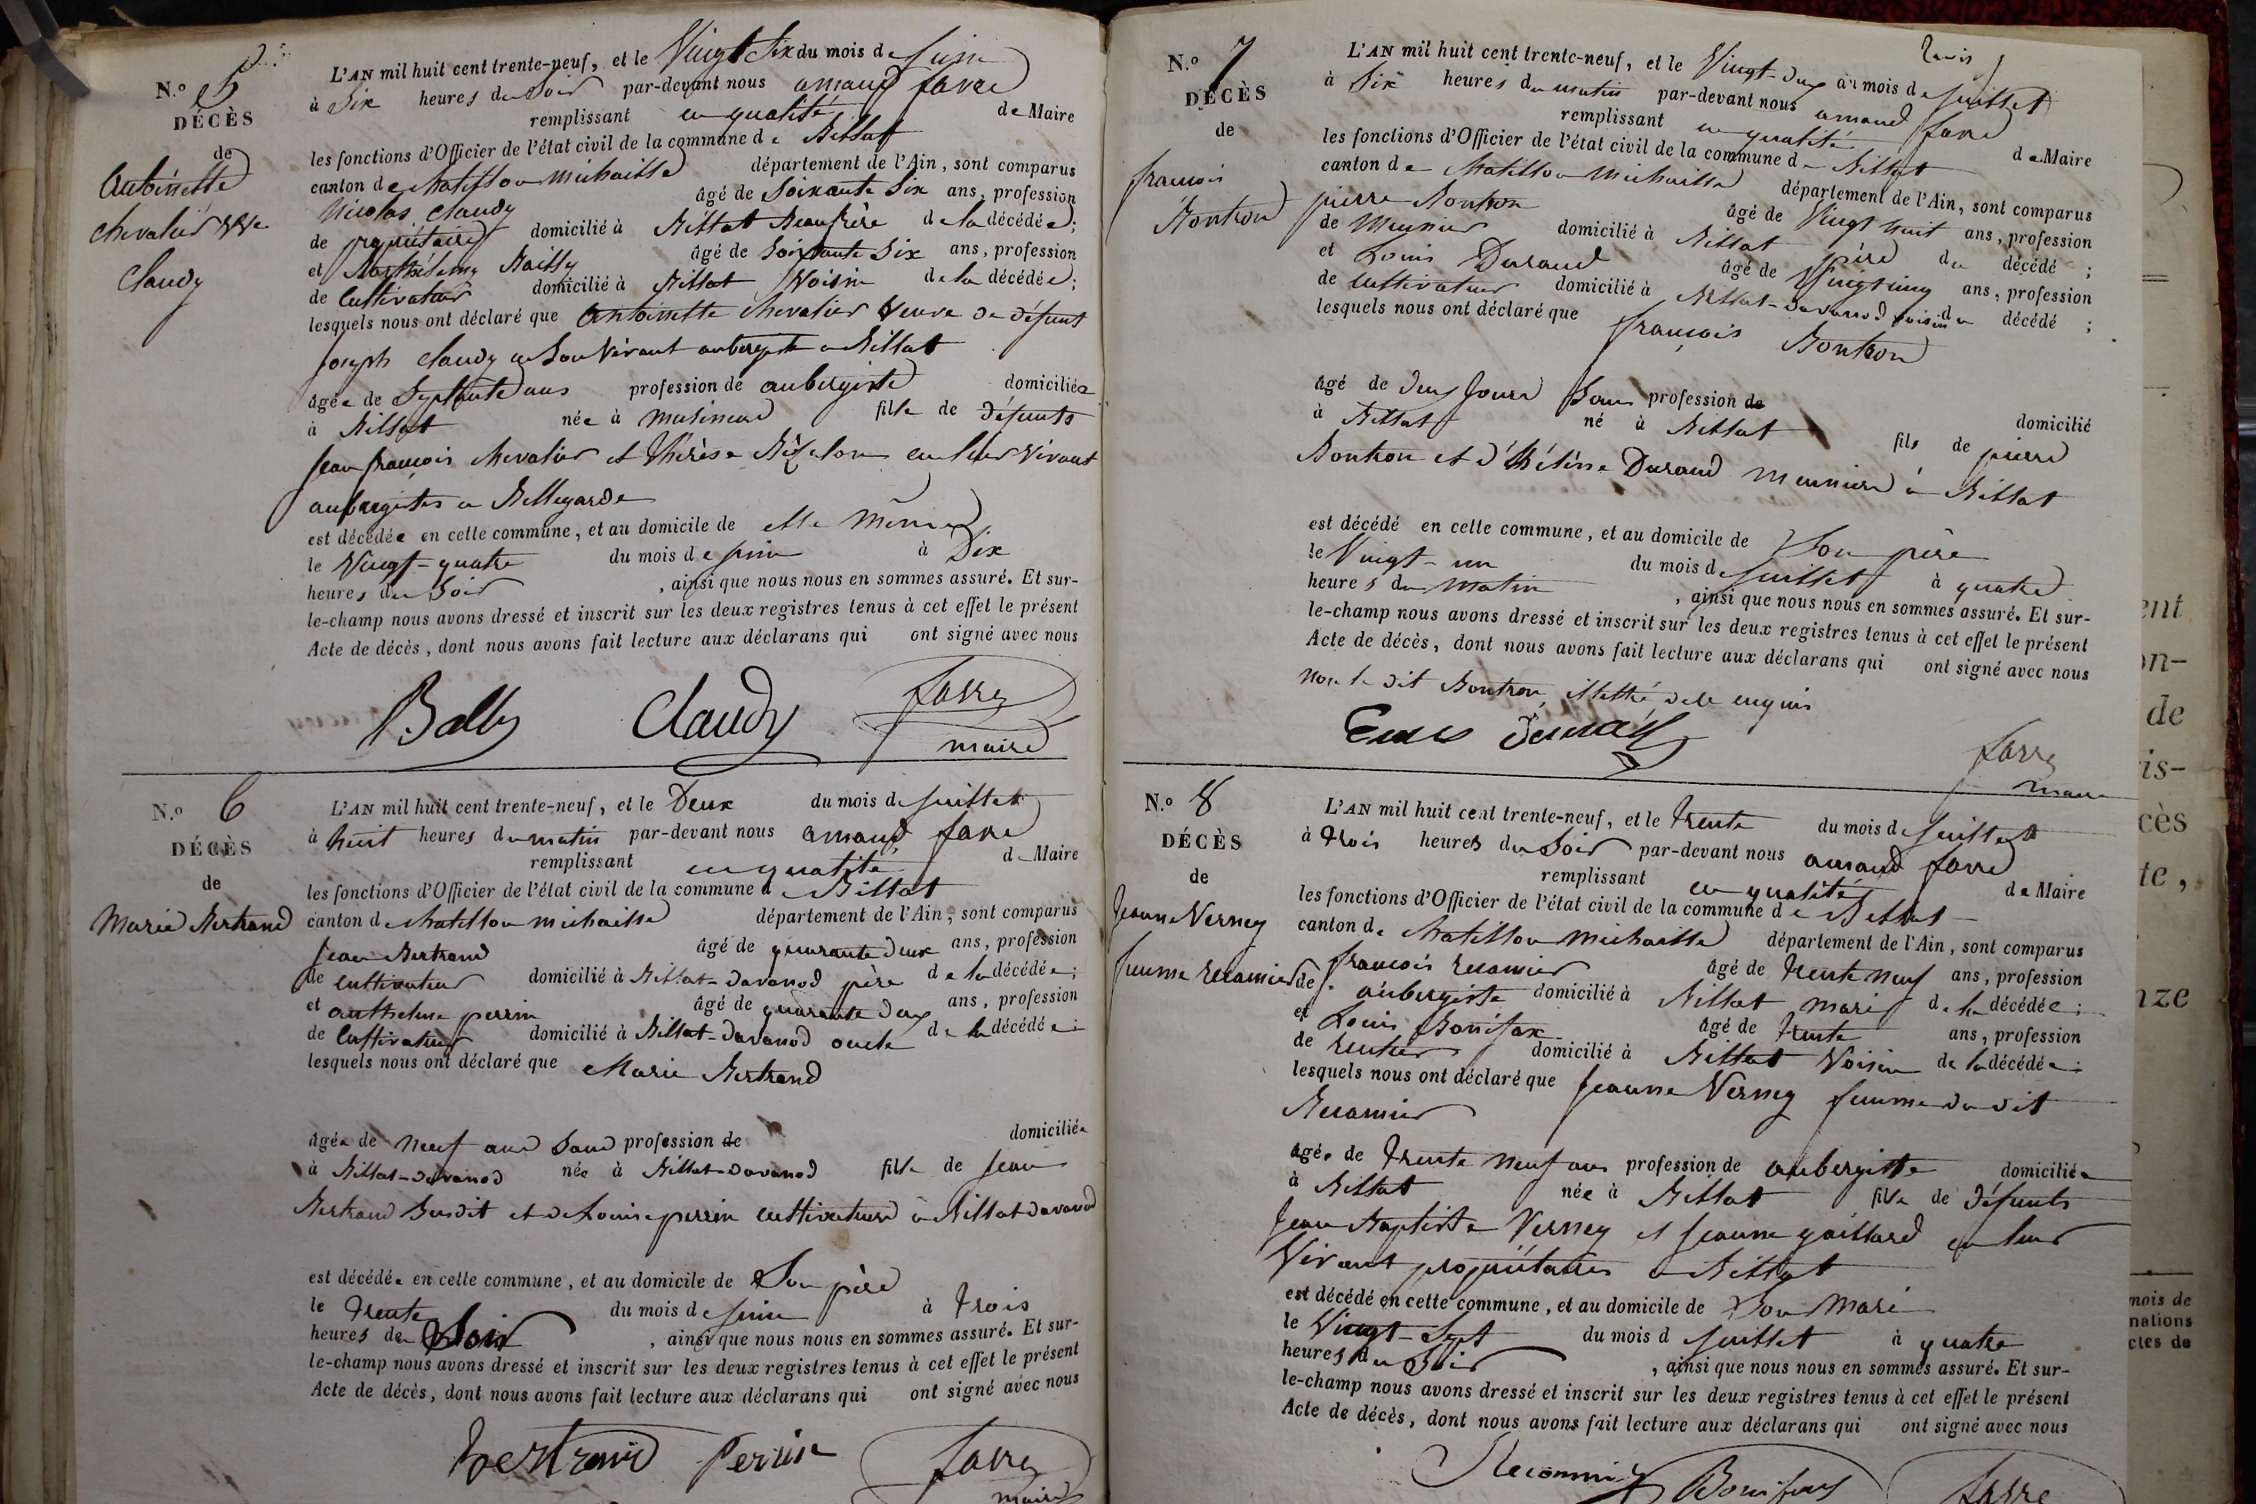 N.o 5
DÉCÈS
de
Antoinette
Chevalier Vve
Claudy
L'AN mil huit cent trente-neuf, et le Vingt Six du mois de Juin
à Six heures du Soir par-devant nous amand favre
remplissant en qualité de Maire
les fonctions d'Officier de l'état civil de la commune de Billiat
canton de Chatillon michaille département de l'Ain, sont comparus
Nicolas Claudy âgé de Soixante Six ans, profession
de propriétaire domicilié à Billiat Beaufrère de la décédée;
et Barthélemy Bailly âgé de Soixante Six ans, profession
de Cultivateur domicilié à Billiat Voisin de la décédée;
lesquels nous ont déclaré que Antoinette Chevalier Veuve de défunt
Joseph Claudy en Son Vivant aubergiste a Billiat
âgée de Septante ans profession de aubergiste domiciliée
à Billiat née à Musinens fille de défunts
Jean françois Chevalier et Thérèse en leur Vivant
aubergistes a Bellegarde
est décédée en cette commune, et au domicile de elle Même
le Vingt-quatre du mois de Juin à Dix
heures du Soir, ainsi que nous nous en sommes assuré. Et sur-
le-champ nous avons dressé et inscrit sur les deux registres tenus à cet effet le présent
Acte de décès, dont nous avons fait lecture aux déclarans qui ont signé avec nous
Bally Claudy favre
maire
N.o 6
DÉCÈS
de
Marie Bertrand
L'AN mil huit cent trente-neuf, et le Deux du mois de Juillet
à huit heures du matin par-devant nous amand favre
remplissant en qualité de Maire
les fonctions d'Officier de l'état civil de la commune de Billiat
canton de Chatillon michaille département de l'Ain, sont comparus
Jean Bertrand âgé de quarante Deux ans, profession
de cultivateur domicilié à Billiat-davanod père de la décédée;
et anthelme perrin âgé de quarante deux ans, profession
de Cultivateur domicilié à Billiat-davanod oncle de la décédée;
lesquels nous ont déclaré que Marie Bertrand
âgée de Neuf ans Sans profession de domiciliée
à Billiat-davanod née à Billiat-davanod fille de Jean
Bertrand Susdit et de Louise perrin cultivateurs à Billiat davanod
est décédée en cette commune, et au domicile de Son père
le trente du mois de Juin à trois
heures du Soir, ainsi que nous nous en sommes assuré. Et sur-
le-champ nous avons dressé et inscrit sur les deux registres tenus à cet effet le présent
Acte de décès, dont nous avons fait lecture aux déclarans qui ont signé avec nous
Bertrand Perrin favre
maire
N.o 7
DÉCÈS
de
françois
Bontron
L'AN mil huit cent trente-neuf, et le Vingt-deux du mois de Juillet
à Six heures du matin par-devant nous amand favre
remplissant en qualité de Maire
les fonctions d'Officier de l'état civil de la commune de Billiat
canton de Chatillon Michaille département de l'Ain, sont comparus
pierre Bontron âgé de Vingt huit ans, profession
de Meunier domicilié à Billiat père du décédé;
et Louis Durand âgé de Vingt cinq ans, profession
de cultivateur domicilié à Billiat-davanod voisin du décédé;
lesquels nous ont déclaré que françois Bontron
âgé de deux Jours Sans profession de domicilié
à Billiat né à Billiat fils de pierre
Bontron et d'hélène Durand Meuniers à Billiat
est décédé en cette commune, et au domicile de Son père
le Vingt-un du mois de Juillet à quatre
heures du Matin, ainsi que nous nous en sommes assuré. Et sur-
le-champ nous avons dressé et inscrit sur les deux registres tenus à cet effet le présent
Acte de décès, dont nous avons fait lecture aux déclarans qui ont signé avec nous
Non le dit Bontron illettré de ce enquis
favre
maire
N.o 8
DÉCÈS
de
Jeanne Verney
femme recamier
L'AN mil huit cent trente-neuf, et le trente du mois de Juillet
à trois heures du Soir par-devant nous amand favre
remplissant en qualité de Maire
les fonctions d'Officier de l'état civil de la commune de Billiat
canton de Chatillon Michaille département de l'Ain, sont comparus
françois recamier âgé de trente neuf ans, profession
de aubergiste domicilié à Billiat mari de la décédée;
et Louis Bonifax âgé de trente ans, profession
de rentier domicilié à Billiat Voisin de la décédée;
lesquels nous ont déclaré que Jeanne Verney femme du dit
Recamier
âgée de trente Neuf ans profession de aubergiste domiciliée
à Billiat née à Billiat fille de défunts
Jean Baptiste Verney et Jeanne gaillard en leur
Vivant propriétaires a Billiat
est décédé en cette commune, et au domicile de Son Mari
le Vingt-Sept du mois d Juillet à quatre
heures du Soir, ainsi que nous nous en sommes assuré. Et sur-
le-champ nous avons dressé et inscrit sur les deux registres tenus à cet effet le présent
Acte de décès, dont nous avons fait lecture aux déclarans qui ont signé avec nous
Favre
ent
on-
de
is-
cès
te,
nze
mois de
nations
ctes de